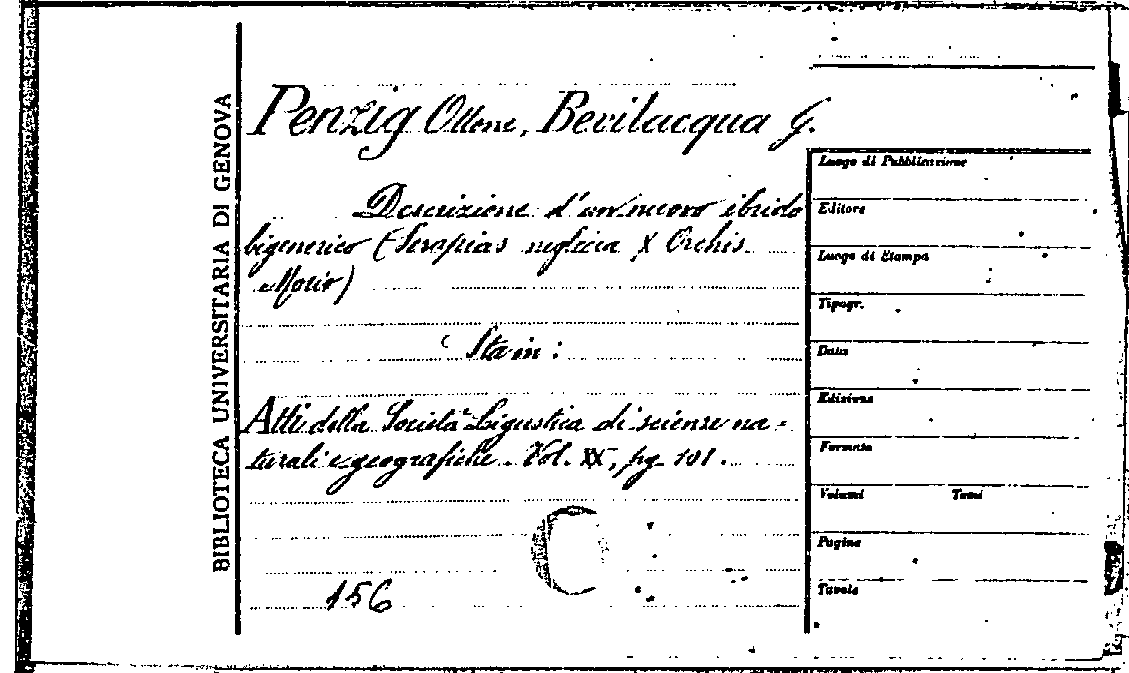 BIBLIOTECA UNIVERSITARIA DI GENOVA
Penzig Ottone, Bevilacqua G.
Descrizione d'un nuovo ibrido
bigenerico (Serapias neglecta X Orchis
Morio)
Sta in:
Atti della Società Ligustica di scienze na-
turali e geografiche. Vol. XX, pg. 101.
156
Luogo di Pubblicazione
Editore
Luogo di Stampa
Tipogr.
Data
Edizione
Formato
Volumi Tomi
Pagine
Tavole